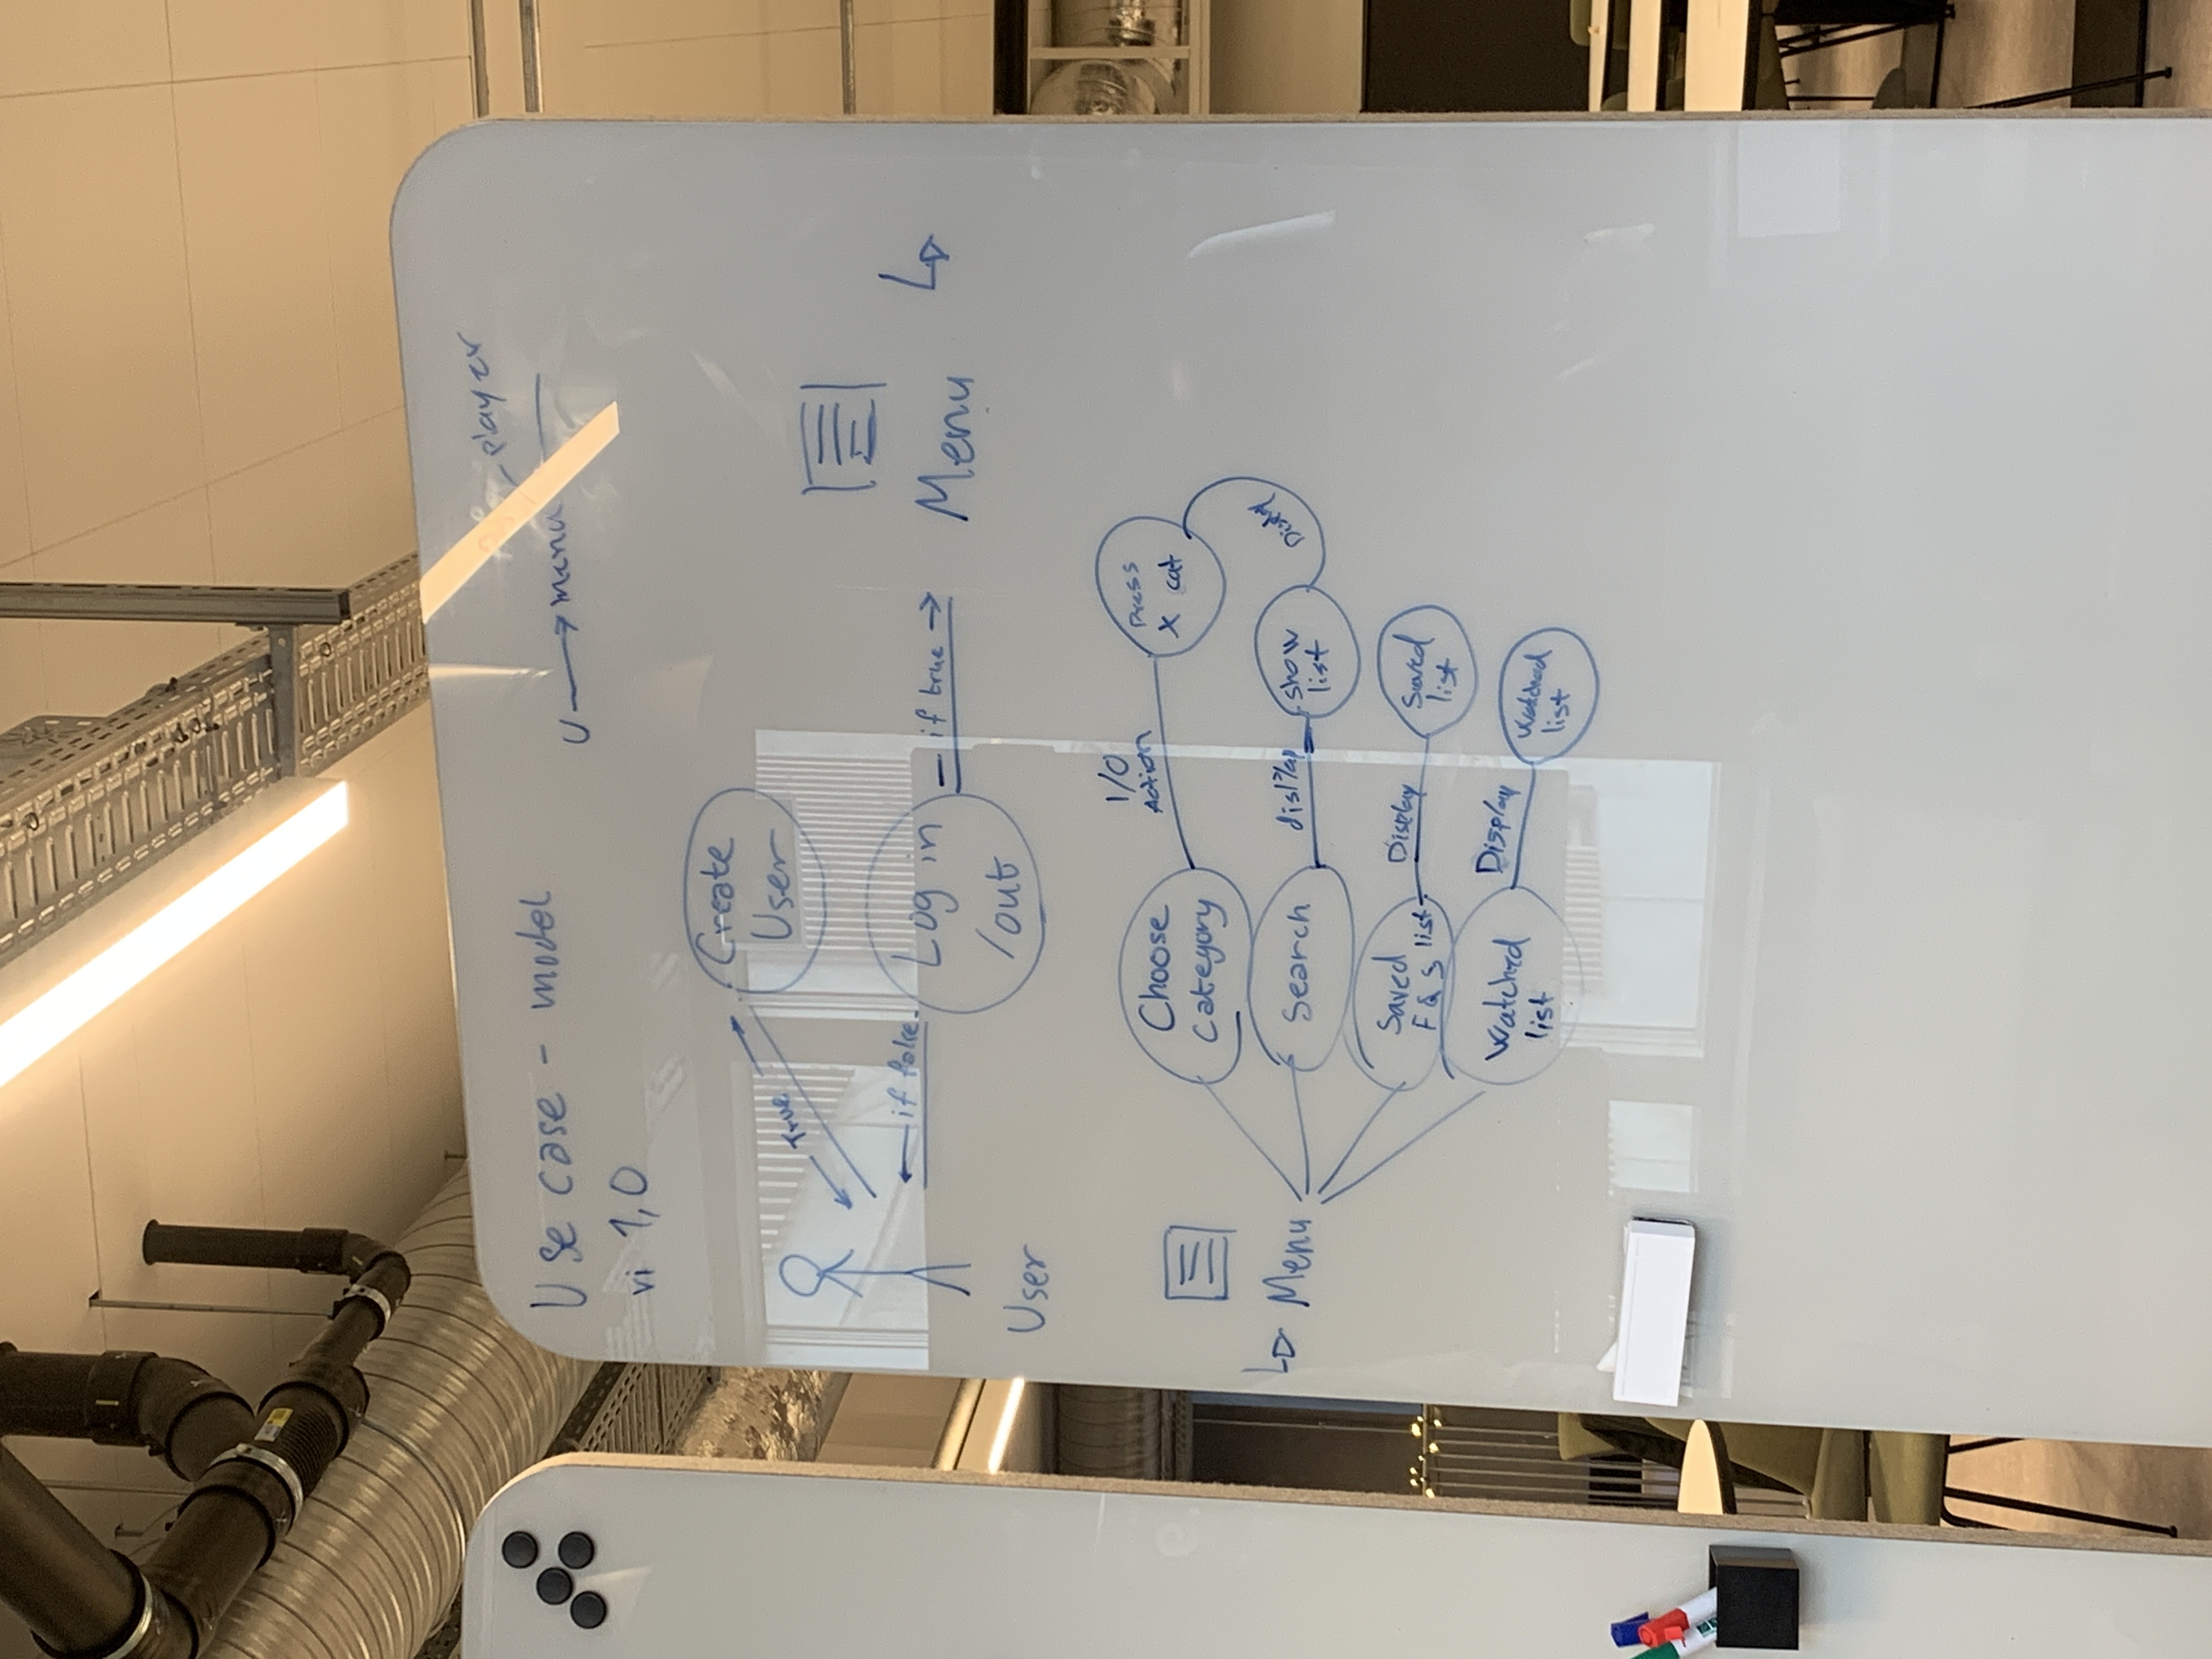 Use case - model
vi 1,0
player
U → menu
Create
User
True
if false
Log in
/out
if true →
Menu
User
Choose
Category
I/O
Action
Press
X cat
Menu
Search
display
show
list
Display
Saved
F & S list
Display
Saved
list
Watched
list
Display
Watched
list